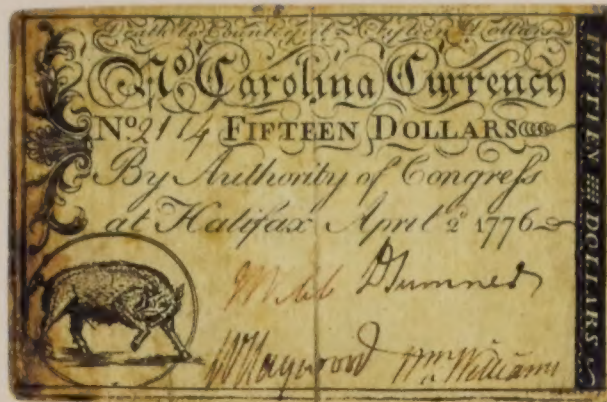 Death to Counterfeit Fifteen Dollars
No. Carolina Currency
No. 2114 FIFTEEN DOLLARS
By Authority of Congress
at Halifax April 2d 1776
FIFTEEN DOLLARS
Webb JSumner
WHaywood Wm. Williams